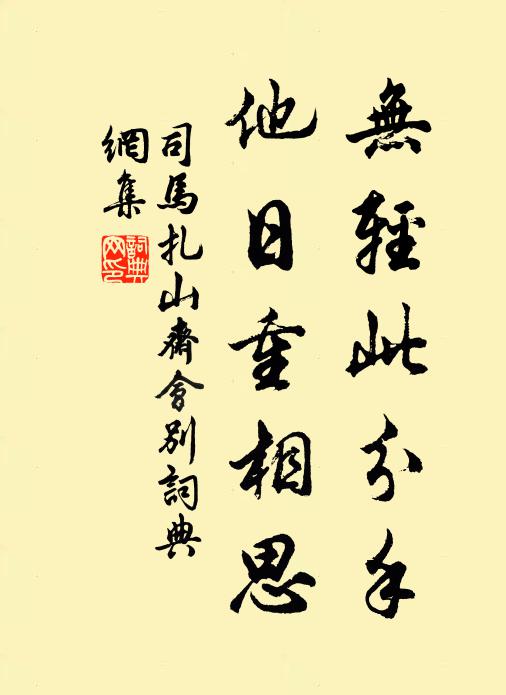 無輕此分手
他日重相思
司馬扎山齋會別詞典
網集
詞典
网印